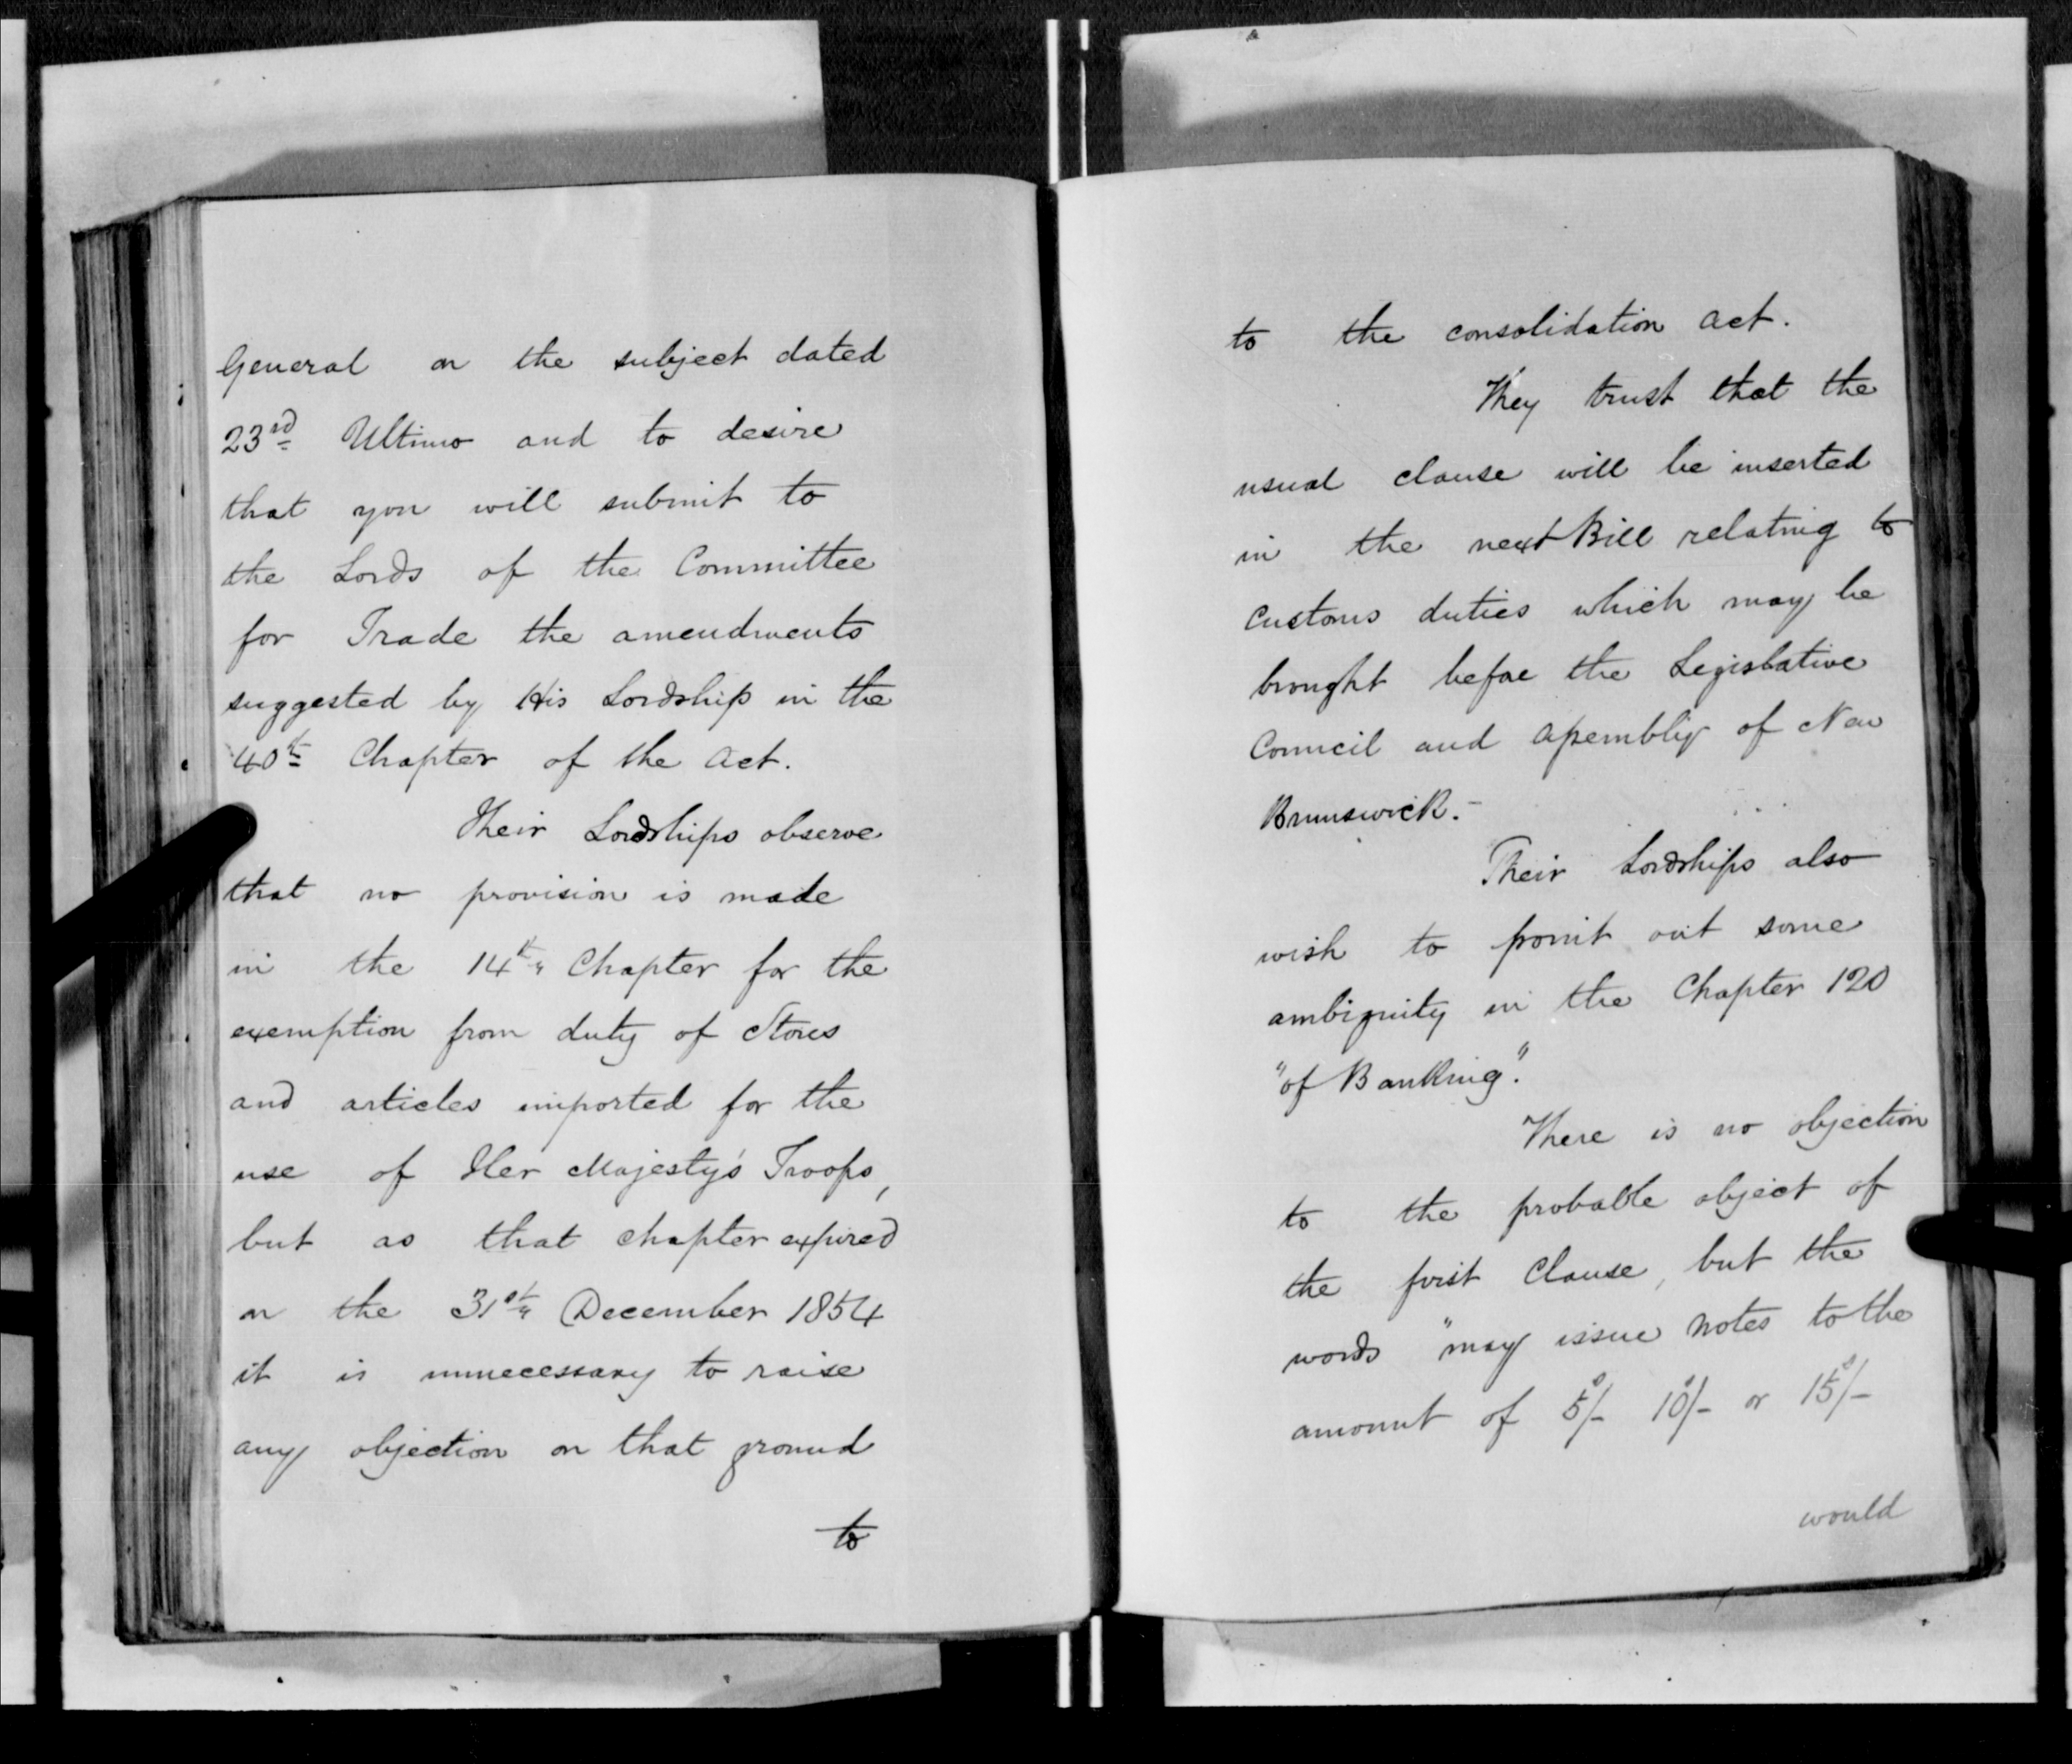 General on the subject dated
23rd Ultimo and to desire
that you will submit to
the Lords of the Committee
for Trade the amendments
suggested by His Lordship in the
40th Chapter of the Act.
Their Lordships observe
that no provision is made
in the 14th Chapter for the
exemption from duty of Stores
and articles imported for the
use of Her Majesty's Troops,
but as that chapter expired
on the 31st December 1854
it is unnecessary to raise
any objection on that ground
to
to the consolidation Act.
They trust that the
usual clause will be inserted
in the next Bill relating to
Customs duties which may be
brought before the Legislative
Council and Assembly of New
Brunswick.-
Their Lordships also
wish to point out some
ambiguity in the Chapter 120
"of Banking".
There is no objection
to the probable object of
the first Clause, but the
words "may issue Notes to the
amount of 5s/- 10s/- or 15s/-
would